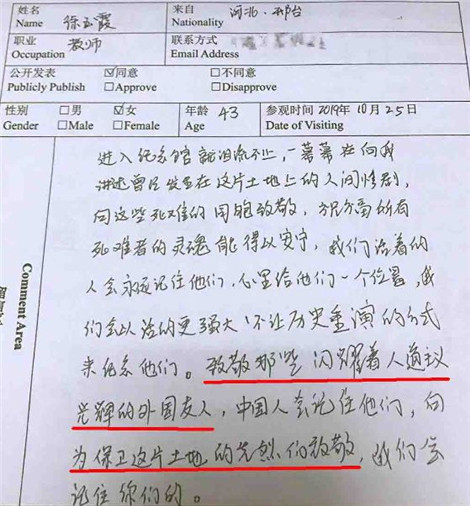 姓名 Name 徐玉霞 来自 Nationality 河北·邢台
职业 Occupation 教师 联系方式 Email Address
公开发表 Publicly Publish ☑同意 Approve □不同意 Disapprove
性别 Gender □男 Male ☑女 Female 年龄 Age 43 参观时间 Date of Visiting 2019年10月25日
Comment Area
进入纪念馆就泪流不止,一幕幕在向我
讲述曾经发生在这片土地上的人间惨剧,
向这些死难的同胞致敬,
死难者的灵魂能得以安宁,我们活着的
人会永远记住他们,心里给他们一个位置,我
们会以活的更强大、不让历史重演的方式
来纪念他们。致敬那些闪耀着人道主义
光辉的外国友人,中国人会记住他们,向
为保卫这片土地的先烈们致敬,我们会
记住你们的。